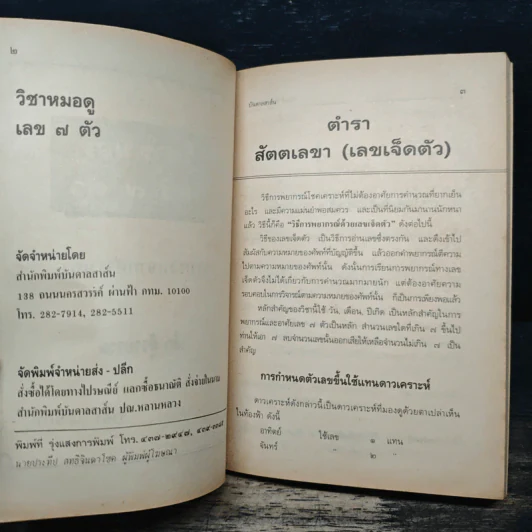 ๒
วิชาหมอดู
เลข ๗ ตัว
จัดจำหน่ายโดย
สำนักพิมพ์บันดาลสาส์น
138 ถนนนครสวรรค์ ผ่านฟ้า กทม. 10100
โทร. 282-7914, 282-5511
จัดพิมพ์จำหน่ายส่ง - ปลีก
สั่งซื้อได้โดยทางไปรษณีย์ แลกซื้อธนาณัติ สั่งจ่ายในนาม
สำนักพิมพ์บันดาลสาส์น ปณ.หลานหลวง
พิมพ์ที่ รุ่งแสงการพิมพ์ โทร. ๔๓๗-๒๙๔๗,
นายประทีป ผู้พิมพ์ผู้โฆษณา
บันดาลสาส์น
๓
ตำรา
สัตตเลขา (เลขเจ็ดตัว)
วิธีการพยากรณ์โชคเคราะห์ที่ไม่ต้องอาศัยการคำนวณที่ยากเย็น
อะไร และมีความแม่นยำพอสมควร และเป็นที่นิยมกันมานานนักหนา
แล้ว วิธีนี้ก็คือ "วิธีการพยากรณ์ด้วยเลขเจ็ดตัว" ดังต่อไปนี้
วิธีของเลขเจ็ดตัว เป็นวิธีการอ่านเลขซึ่งตรงกัน และดึงเข้าไป
สัมผัสกับความหมายของศัพท์ที่บัญญัติขึ้น แล้วออกคำพยากรณ์ตีความ
ไปตามความหมายของศัพท์นั้น ดังนั้นการเรียนการพยากรณ์ทางเลข
เจ็ดตัวจึงไม่ได้เกี่ยวกับการคำนวณมากมายนัก แต่ต้องอาศัยความ
รอบคอบในการวิจารณ์ตามความหมายของศัพท์นั้น ก็เป็นการเพียงพอแล้ว
หลักสำคัญของวิชานี้ใช้ วัน, เดือน, ปีเกิด เป็นหลักสำคัญในการ
พยากรณ์และอาศัยเลข ๗ ตัวเป็นหลัก สำนวนเลขใดที่เกิน ๗ ขึ้นไป
ท่านให้เอา ๗ ลบจำนวนเลขนั้นออกเสียให้เหลือจำนวนไม่เกิน ๗ เป็น
สำคัญ
การกำหนดตัวเลขขึ้นใช้แทนดาวเคราะห์
ดาวเคราะห์ดังกล่าวนี้เป็นดาวเคราะห์ที่มองดูด้วยตาเปล่าเห็น
ในท้องฟ้า ดังนี้
อาทิตย์ ใช้เลข ๑ แทน
จันทร์ ๒